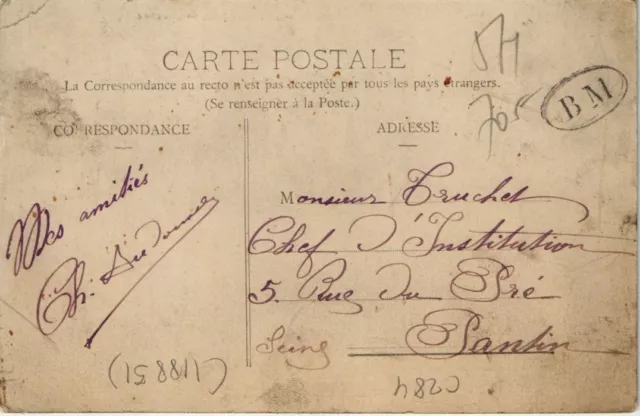 CARTE POSTALE
La Correspondance au recto n'est pas acceptée par tous les pays étrangers.
(Se renseigner à la Poste.)
CORRESPONDANCE
ADRESSE
BM
705
Mes amitiés
Monsieur Truchet
Chef d'Institution
5. Rue du Pré
Pantin
Seine
(118851)